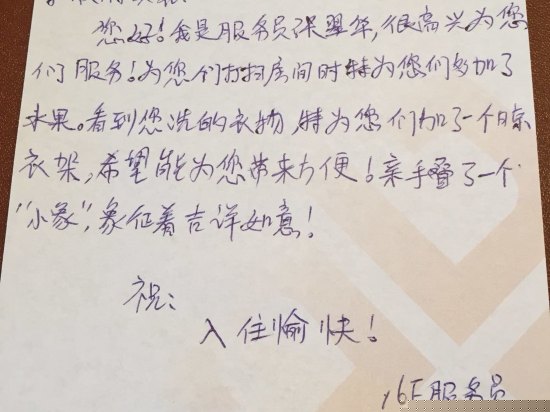 您好！我是服务员张翠华，很高兴为您
们服务！为您们打扫房间时特为您们多加了
水果。看到您洗的衣物，特为您们加了一个晾
衣架，希望能为您带来方便！亲手叠了一个
“小象”，象征着吉详如意！
祝：
入住愉快！
16F服务员